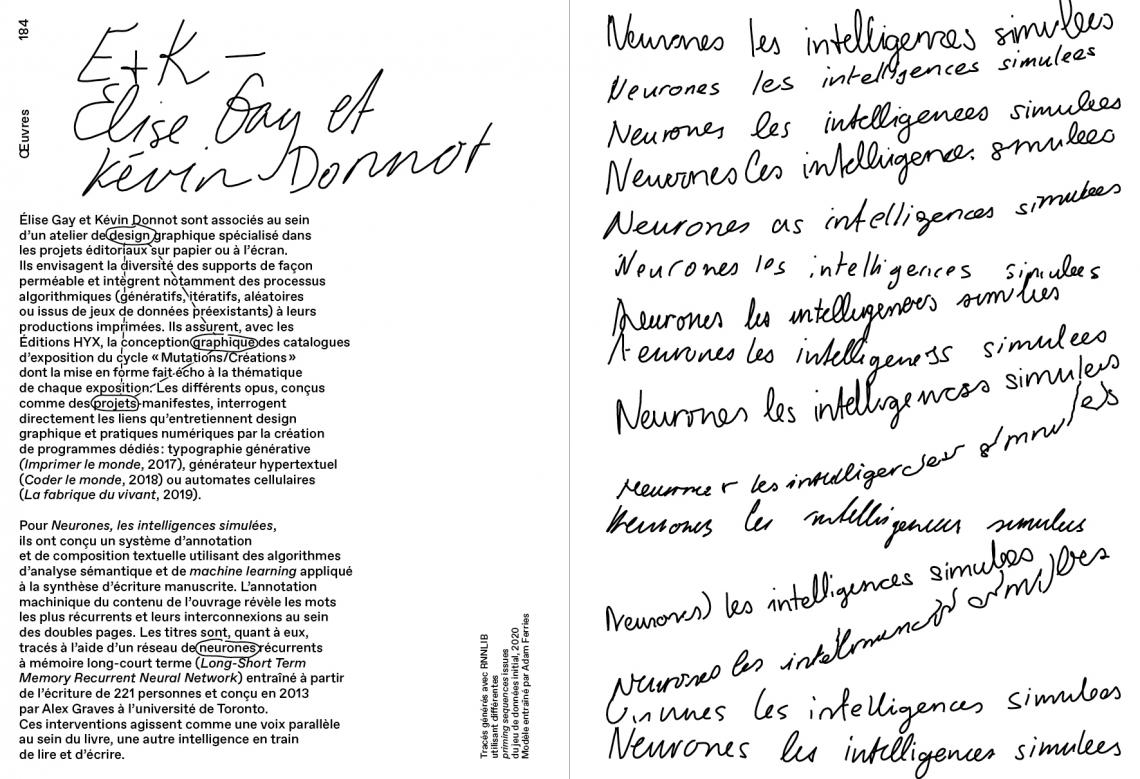 184
Œuvres
E+K –
Élise Gay et
Kévin Donnot
Élise Gay et Kévin Donnot sont associés au sein
d’un atelier de design graphique spécialisé dans
les projets éditoriaux sur papier ou à l’écran.
Ils envisagent la diversité des supports de façon
perméable et intègrent notamment des processus
algorithmiques (génératifs, itératifs, aléatoires
ou issus de jeux de données préexistants) à leurs
productions imprimées. Ils assurent, avec les
Éditions HYX, la conception graphique des catalogues
d’exposition du cycle « Mutations/Créations »
dont la mise en forme fait écho à la thématique
de chaque exposition. Les différents opus, conçus
comme des projets-manifestes, interrogent
directement les liens qu’entretiennent design
graphique et pratiques numériques par la création
de programmes dédiés : typographie générative
(Imprimer le monde, 2017), générateur hypertextuel
(Coder le monde, 2018) ou automates cellulaires
(La fabrique du vivant, 2019).
Pour Neurones, les intelligences simulées,
ils ont conçu un système d’annotation
et de composition textuelle utilisant des algorithmes
d’analyse sémantique et de machine learning appliqué
à la synthèse d’écriture manuscrite. L’annotation
machinique du contenu de l’ouvrage révèle les mots
les plus récurrents et leurs interconnexions au sein
des doubles pages. Les titres sont, quant à eux,
tracés à l’aide d’un réseau de neurones récurrents
à mémoire long-court terme (Long-Short Term
Memory Recurrent Neural Network) entraîné à partir
de l’écriture de 221 personnes et conçu en 2013
par Alex Graves à l’université de Toronto.
Ces interventions agissent comme une voix parallèle
au sein du livre, une autre intelligence en train
de lire et d’écrire.
Tracés générés avec RNNLIB
utilisant différentes
priming sequences issues
du jeu de données initial, 2020
Modèle entraîné par Adam Ferries
Neurones les intelligences simulees
Neurones les intelligences simulees
Neurones les intelligences simulees
Neurones les intelligences simulees
Neurones as intelligences simulees
Neurones les intelligences simulees
Neurones les intelligences simulees
Neurones les intelligences simulees
Neurones les intelligences simulees
les
Neurones les intelligences simulees
Neurones les intelligences simulees
Neurones les
les intelligences simulees
Neurones les intelligences simulees